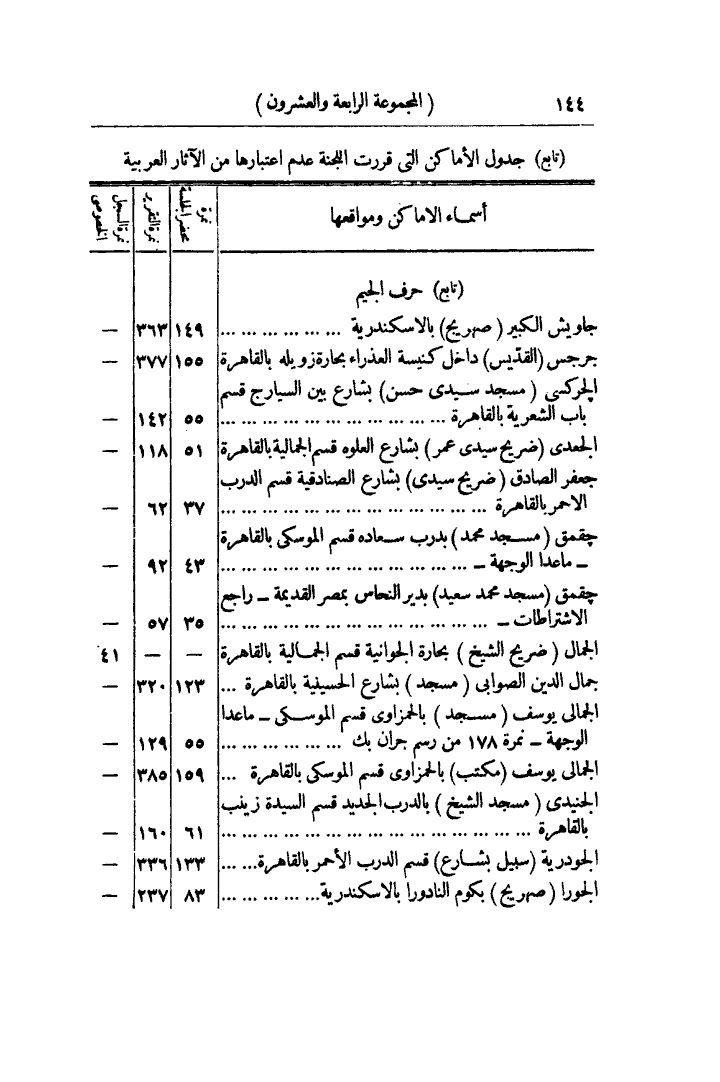 ١٤٤ (المجموعة الرابعة والعشرون)
(تابع) جدول الأماكن التى قررت اللجنة عدم اعتبارها من الآثار العربية
أسماء الاماكن ومواقعها | نمرة محضر الجلسة | نمرة التقرير | نمرة السجل الخصوصى
(تابع) حرف الجيم
جاويش الكبير (صهريج) بالاسكندرية ... ... ... ... ... ... | ١٤٩ | ٣٦٣ | —
جرجس (القدّيس) داخل كنيسة العذراء بحارة زويله بالقاهرة | ١٥٥ | ٣٧٧ | —
الجركسى (مسجد سيدى حسن) بشارع بين السيارج قسم
باب الشعرية بالقاهرة ... ... ... ... ... ... ... ... ... ... ... | ٥٥ | ١٤٢ | —
الجعدى (ضريح سيدى عمر) بشارع العلوه قسم الجمالية بالقاهرة | ٥١ | ١١٨ | —
جعفر الصادق (ضريح سيدى) بشارع الصنادقية قسم الدرب
الاحمر بالقاهرة ... ... ... ... ... ... ... ... ... ... ... ... ... | ٣٧ | ٦٢ | —
چقمق (مسجد محمد) بدرب سعاده قسم الموسكى بالقاهرة
— ماعدا الوجهة — ... ... ... ... ... ... ... ... ... ... ... ... | ٤٣ | ٩٢ | —
چقمق (مسجد محمد سعيد) بدير النحاس بمصر القديمة — راجع
الاشتراطات — ... ... ... ... ... ... ... ... ... ... ... ... ... | ٣٥ | ٥٧ | —
الجمال (ضريح الشيخ) بحارة الجوانية قسم الجمالية بالقاهرة | — | — | ٤١
جمال الدين الصوابى (مسجد) بشارع الحسينية بالقاهرة ... | ١٢٣ | ٣٢٠ | —
الجمالى يوسف (مسجد) بالحمزاوى قسم الموسكى — ماعدا
الوجهة — نمرة ١٧٨ من رسم جران بك ... ... ... ... ... ... | ٥٥ | ١٢٩ | —
الجمالى يوسف (مكتب) بالحمزاوى قسم الموسكى بالقاهرة ... | ١٥٩ | ٣٨٥ | —
الجنيدى (مسجد الشيخ) بالدرب الجديد قسم السيدة زينب
بالقاهرة ... ... ... ... ... ... ... ... ... ... ... ... ... ... ... | ٦١ | ١٦٠ | —
الجودرية (سبيل بشارع) قسم الدرب الأحمر بالقاهرة... ... | ١٣٣ | ٣٣٦ | —
الجورا (صهريج) بكوم النادورا بالاسكندرية... ... ... ... ... | ٨٣ | ٢٣٧ | —